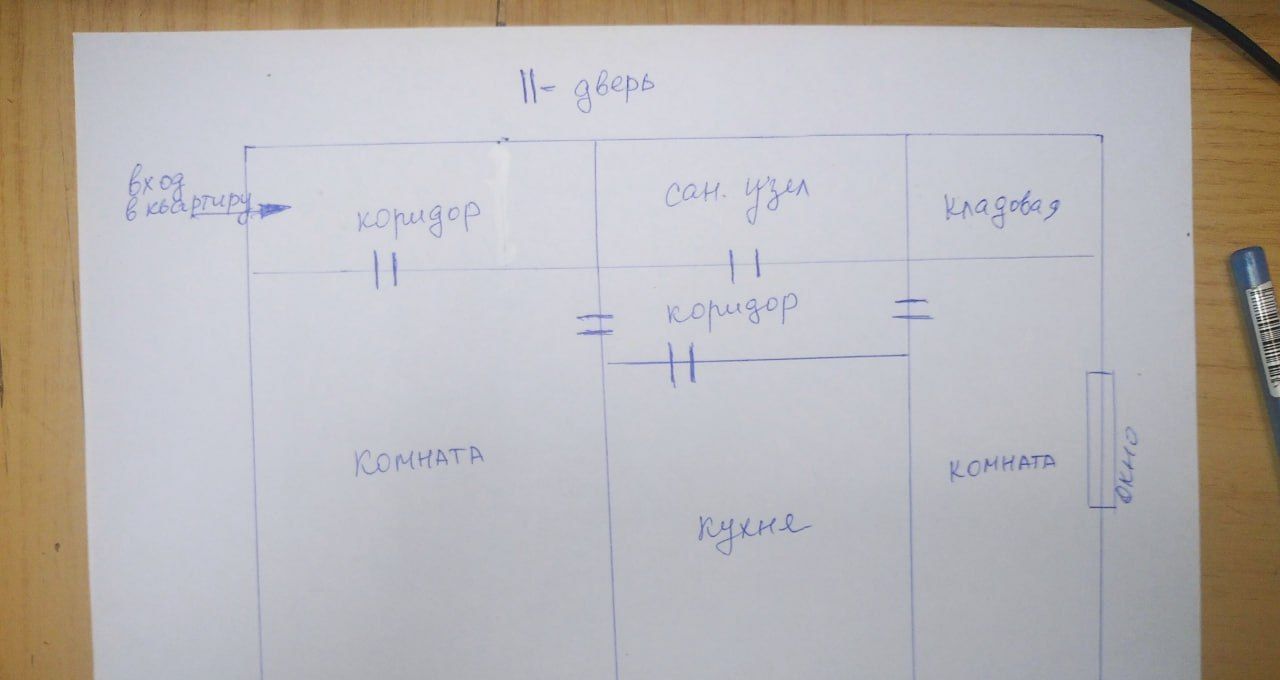 ||- дверь
вход
в квартиру
коридор
сан. узел
кладовая
коридор
комната
кухня
комната
окно